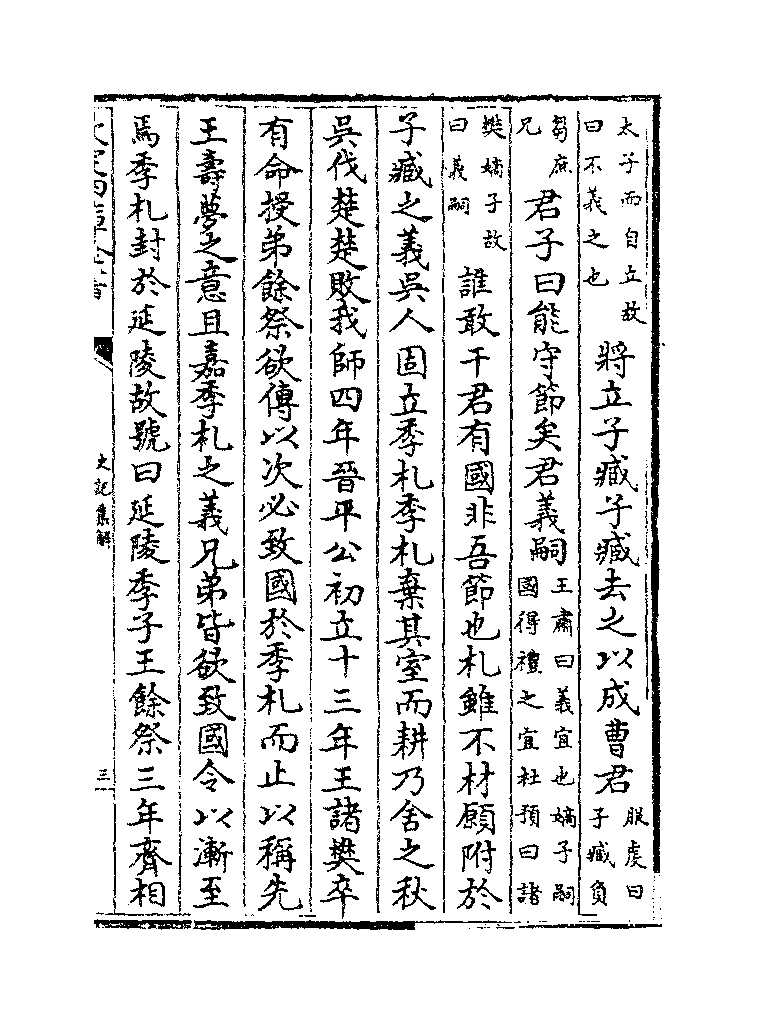 太子而自立故曰不義之也將立子臧子臧去之以成曹君服虔曰子臧負
芻庶兄君子曰能守節矣君義嗣王肅曰義宜也嫡子嗣國得禮之宜杜預曰諸
樊嫡子故曰義嗣誰敢干君有國非吾節也札雖不材願附於
子臧之義吳人固立季札季札棄其室而耕乃舍之秋
吳伐楚楚敗我師四年晉平公初立十三年王諸樊卒
有命授弟餘祭欲傳以次必致國於季札而止以稱先
王壽夢之意且嘉季札之義兄弟皆欲致國令以漸至
焉季札封於延陵故號曰延陵季子王餘祭三年齊相
史記集解
三